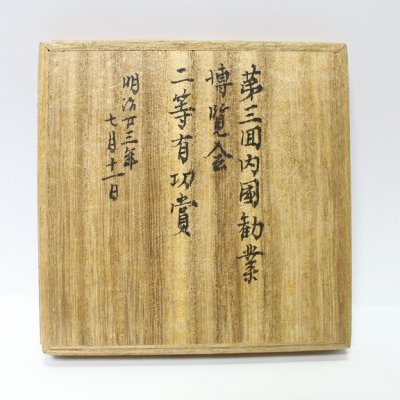 第三回内國勧業
博覧会
二等有功賞
明治廿三年
七月十一日